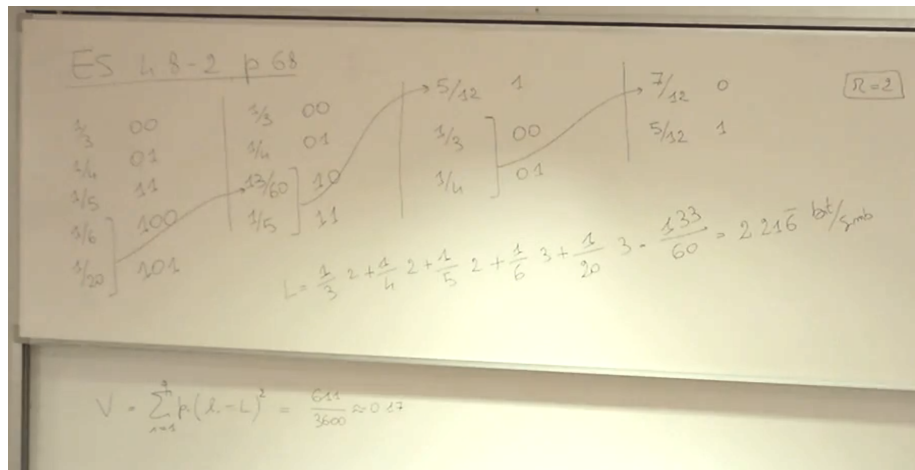 ES 4 8-2 p 68
r=2
1/3 00
1/4 01
1/5 11
1/6 100
1/20 101
1/3 00
1/4 01
13/60 10
1/5 11
5/12 1
1/3 00
1/4 01
7/12 0
5/12 1
L = 1/3 2 + 1/4 2 + 1/5 2 + 1/6 3 + 1/20 3 = 133/60 = 2.216̅ bit/simb
V = ∑ᵢ₌₁^q pᵢ(lᵢ-L)² = 611/3600 ≈ 0.17